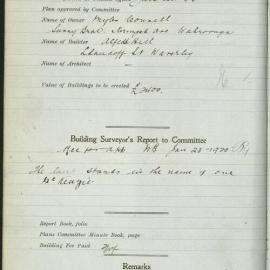 Plan approved by Committee
Name of Owner Myles Connell
Sunny Brae Ave Wahroonga
Name of Builder Alfred Hill
St Waverley
Name of Architect —
Value of Buildings to be erected £2400.
Building Surveyor's Report to Committee
Rec for app Jan 28-1920
The land stands in the name of one
McKenzie
Report Book, folio
Plans Committee Minute Book, page
Building Fee Paid
Remarks